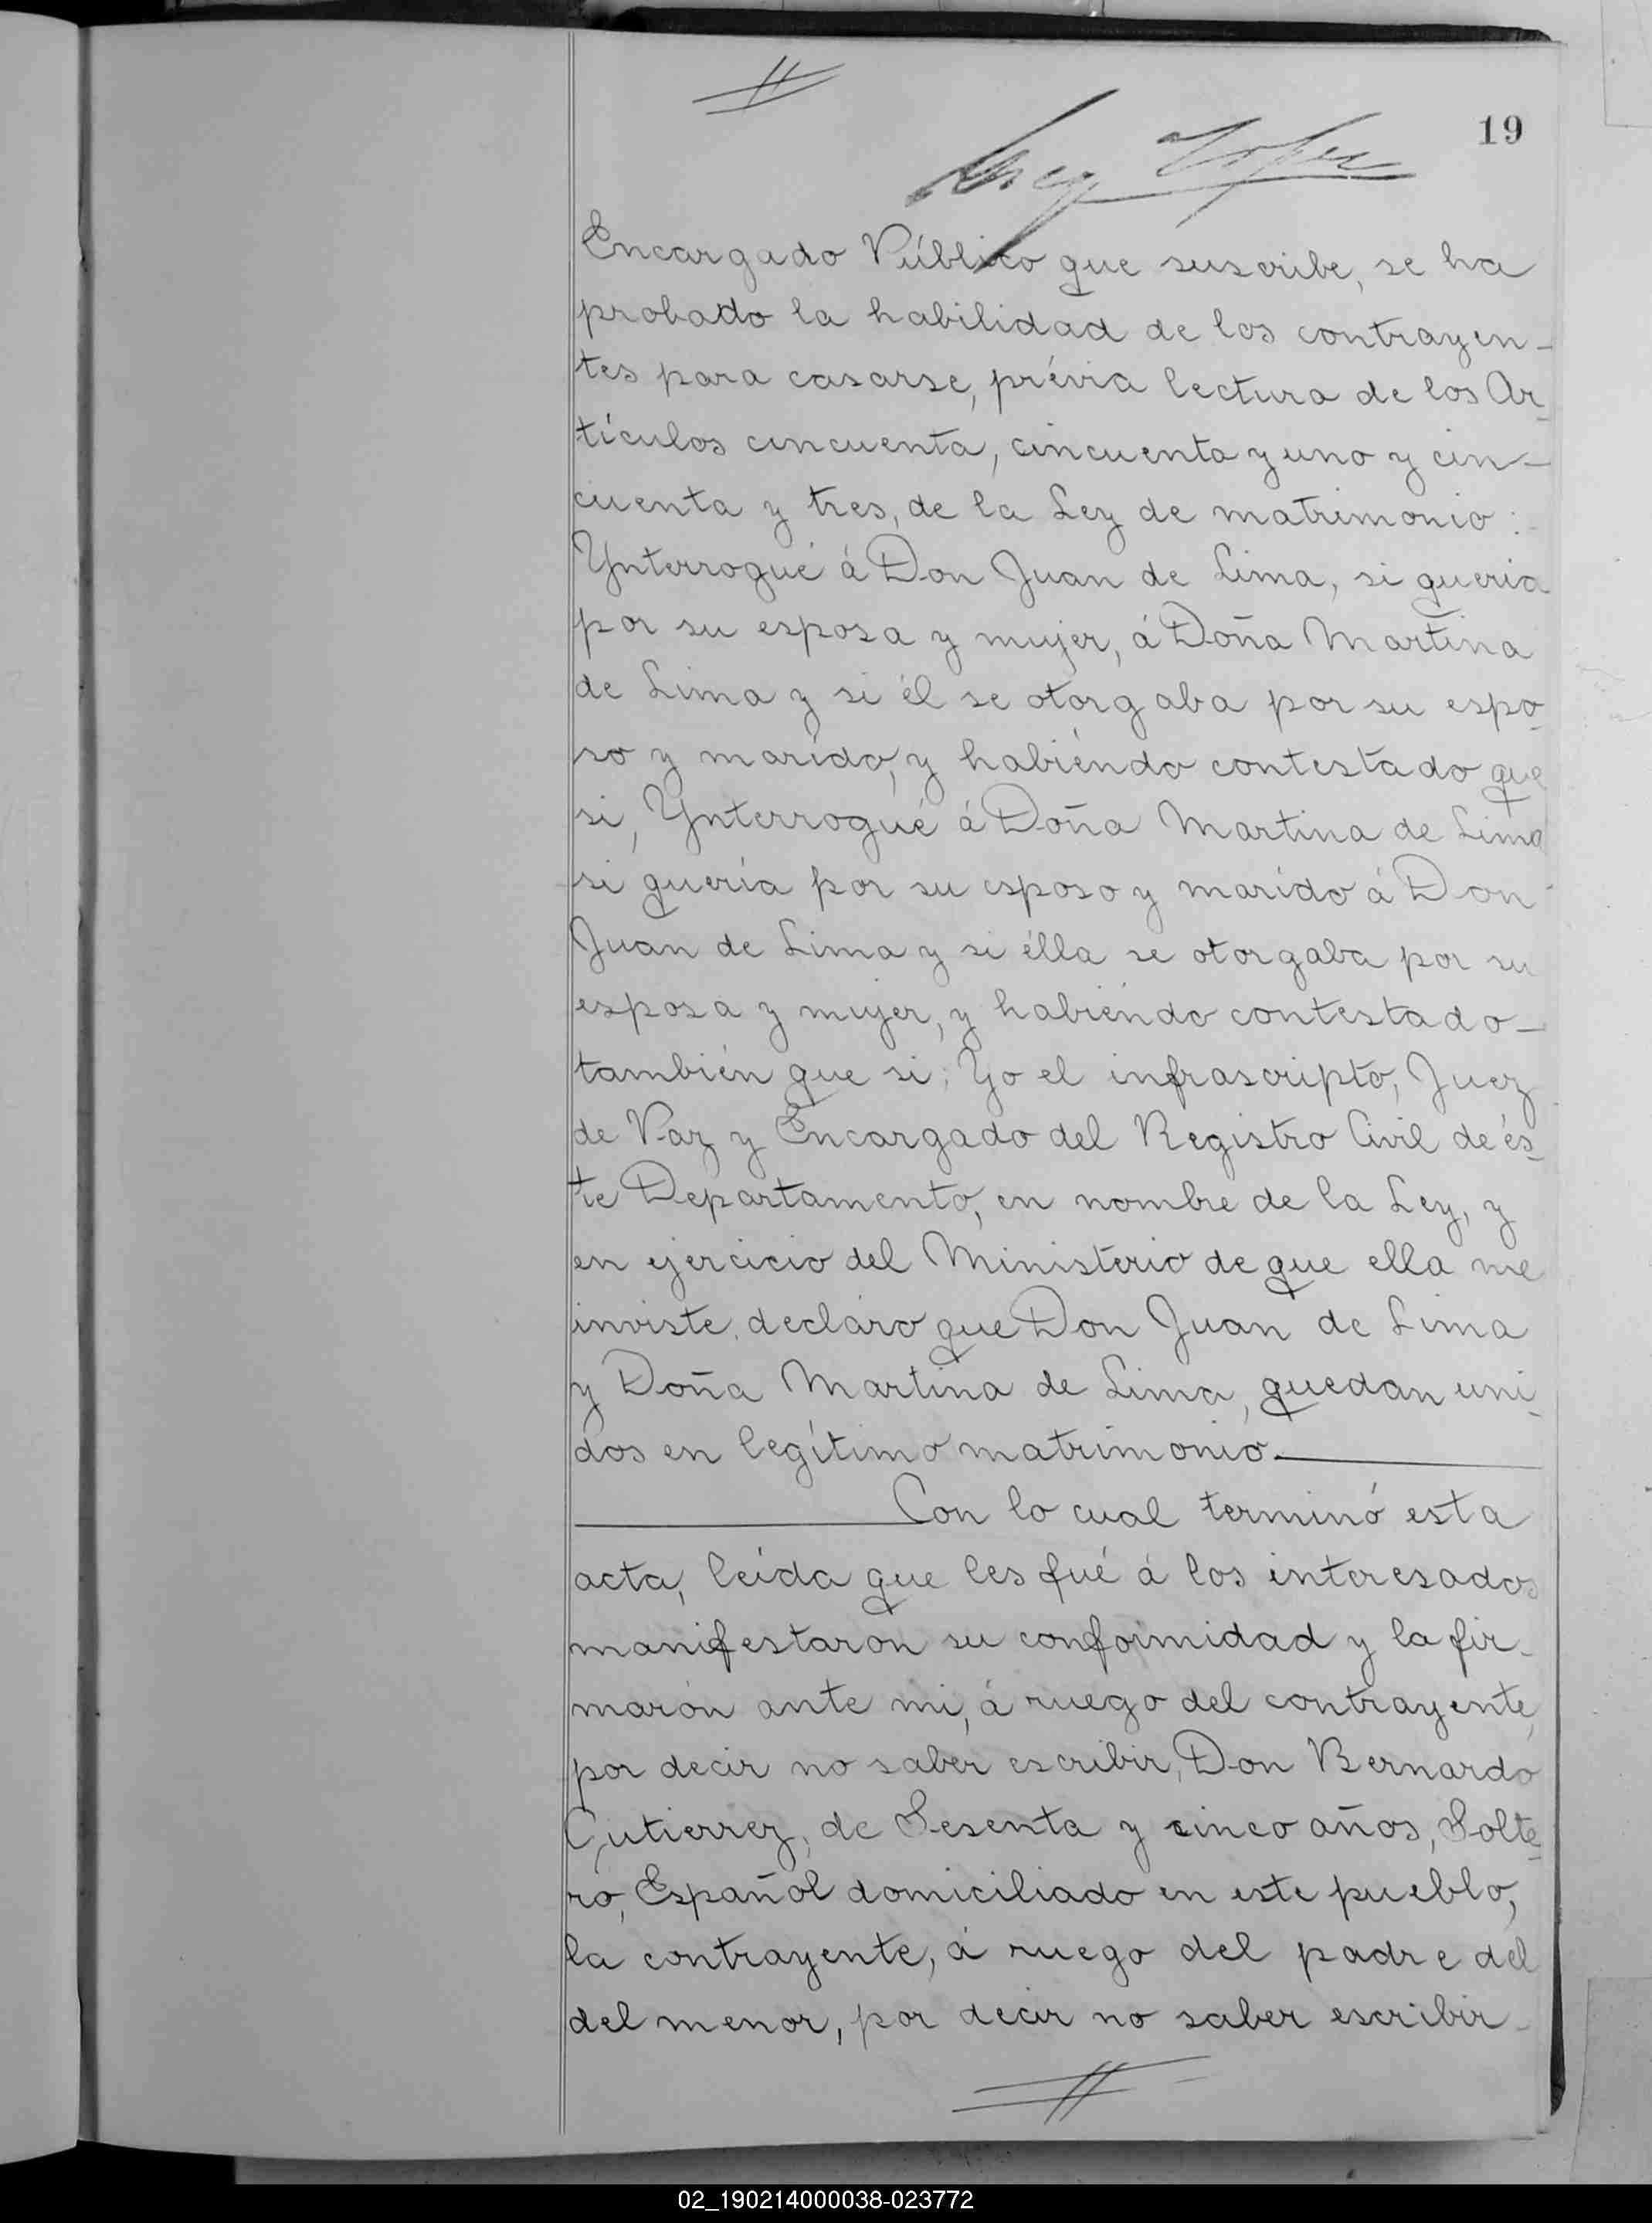 19
Encargado Público que suscribe, se ha
probado la habilidad de los contrayen-
tes para casarse, prévia lectura de los Ar-
tículos cincuenta, cincuenta y uno y cin-
cuenta y tres, de la Ley de matrimonio:
Ynterrogué á Don Juan de Lima, si queria
por su esposa y mujer, á Doña Martina
de Lima y si él se otorgaba por su espo-
so y marído, y habiéndo contestado que
si, Ynterrogué á Doña Martina de Lima
si quería por su esposo y marido á Don
Juan de Lima y si élla se otorgaba por su
esposa y mujer, y habiéndo contestado-
también que si; Yo el infrascripto, Juez
de Paz y Encargado del Registro Civil de és-
te Departamento, en nombre de la Ley, y
en ejercicio del Ministerio de que ella me
inviste, declaro que Don Juan de Lima
y Doña Martina de Lima, quedan uni-
dos en legítimo matrimonio.
Con lo cual terminó esta
acta, leída que les fué á los interesados
manifestaron su conformidad y la fir-
marón ante mi, á ruego del contrayente,
por decir no saber escribir, Don Bernardo
Gutierrez, de Sesenta y cinco años, Solte-
ro, Español domiciliado en este pueblo,
la contrayente, á ruego del padre del
del menor, por decir no saber escribir-
02_190214000038-023772